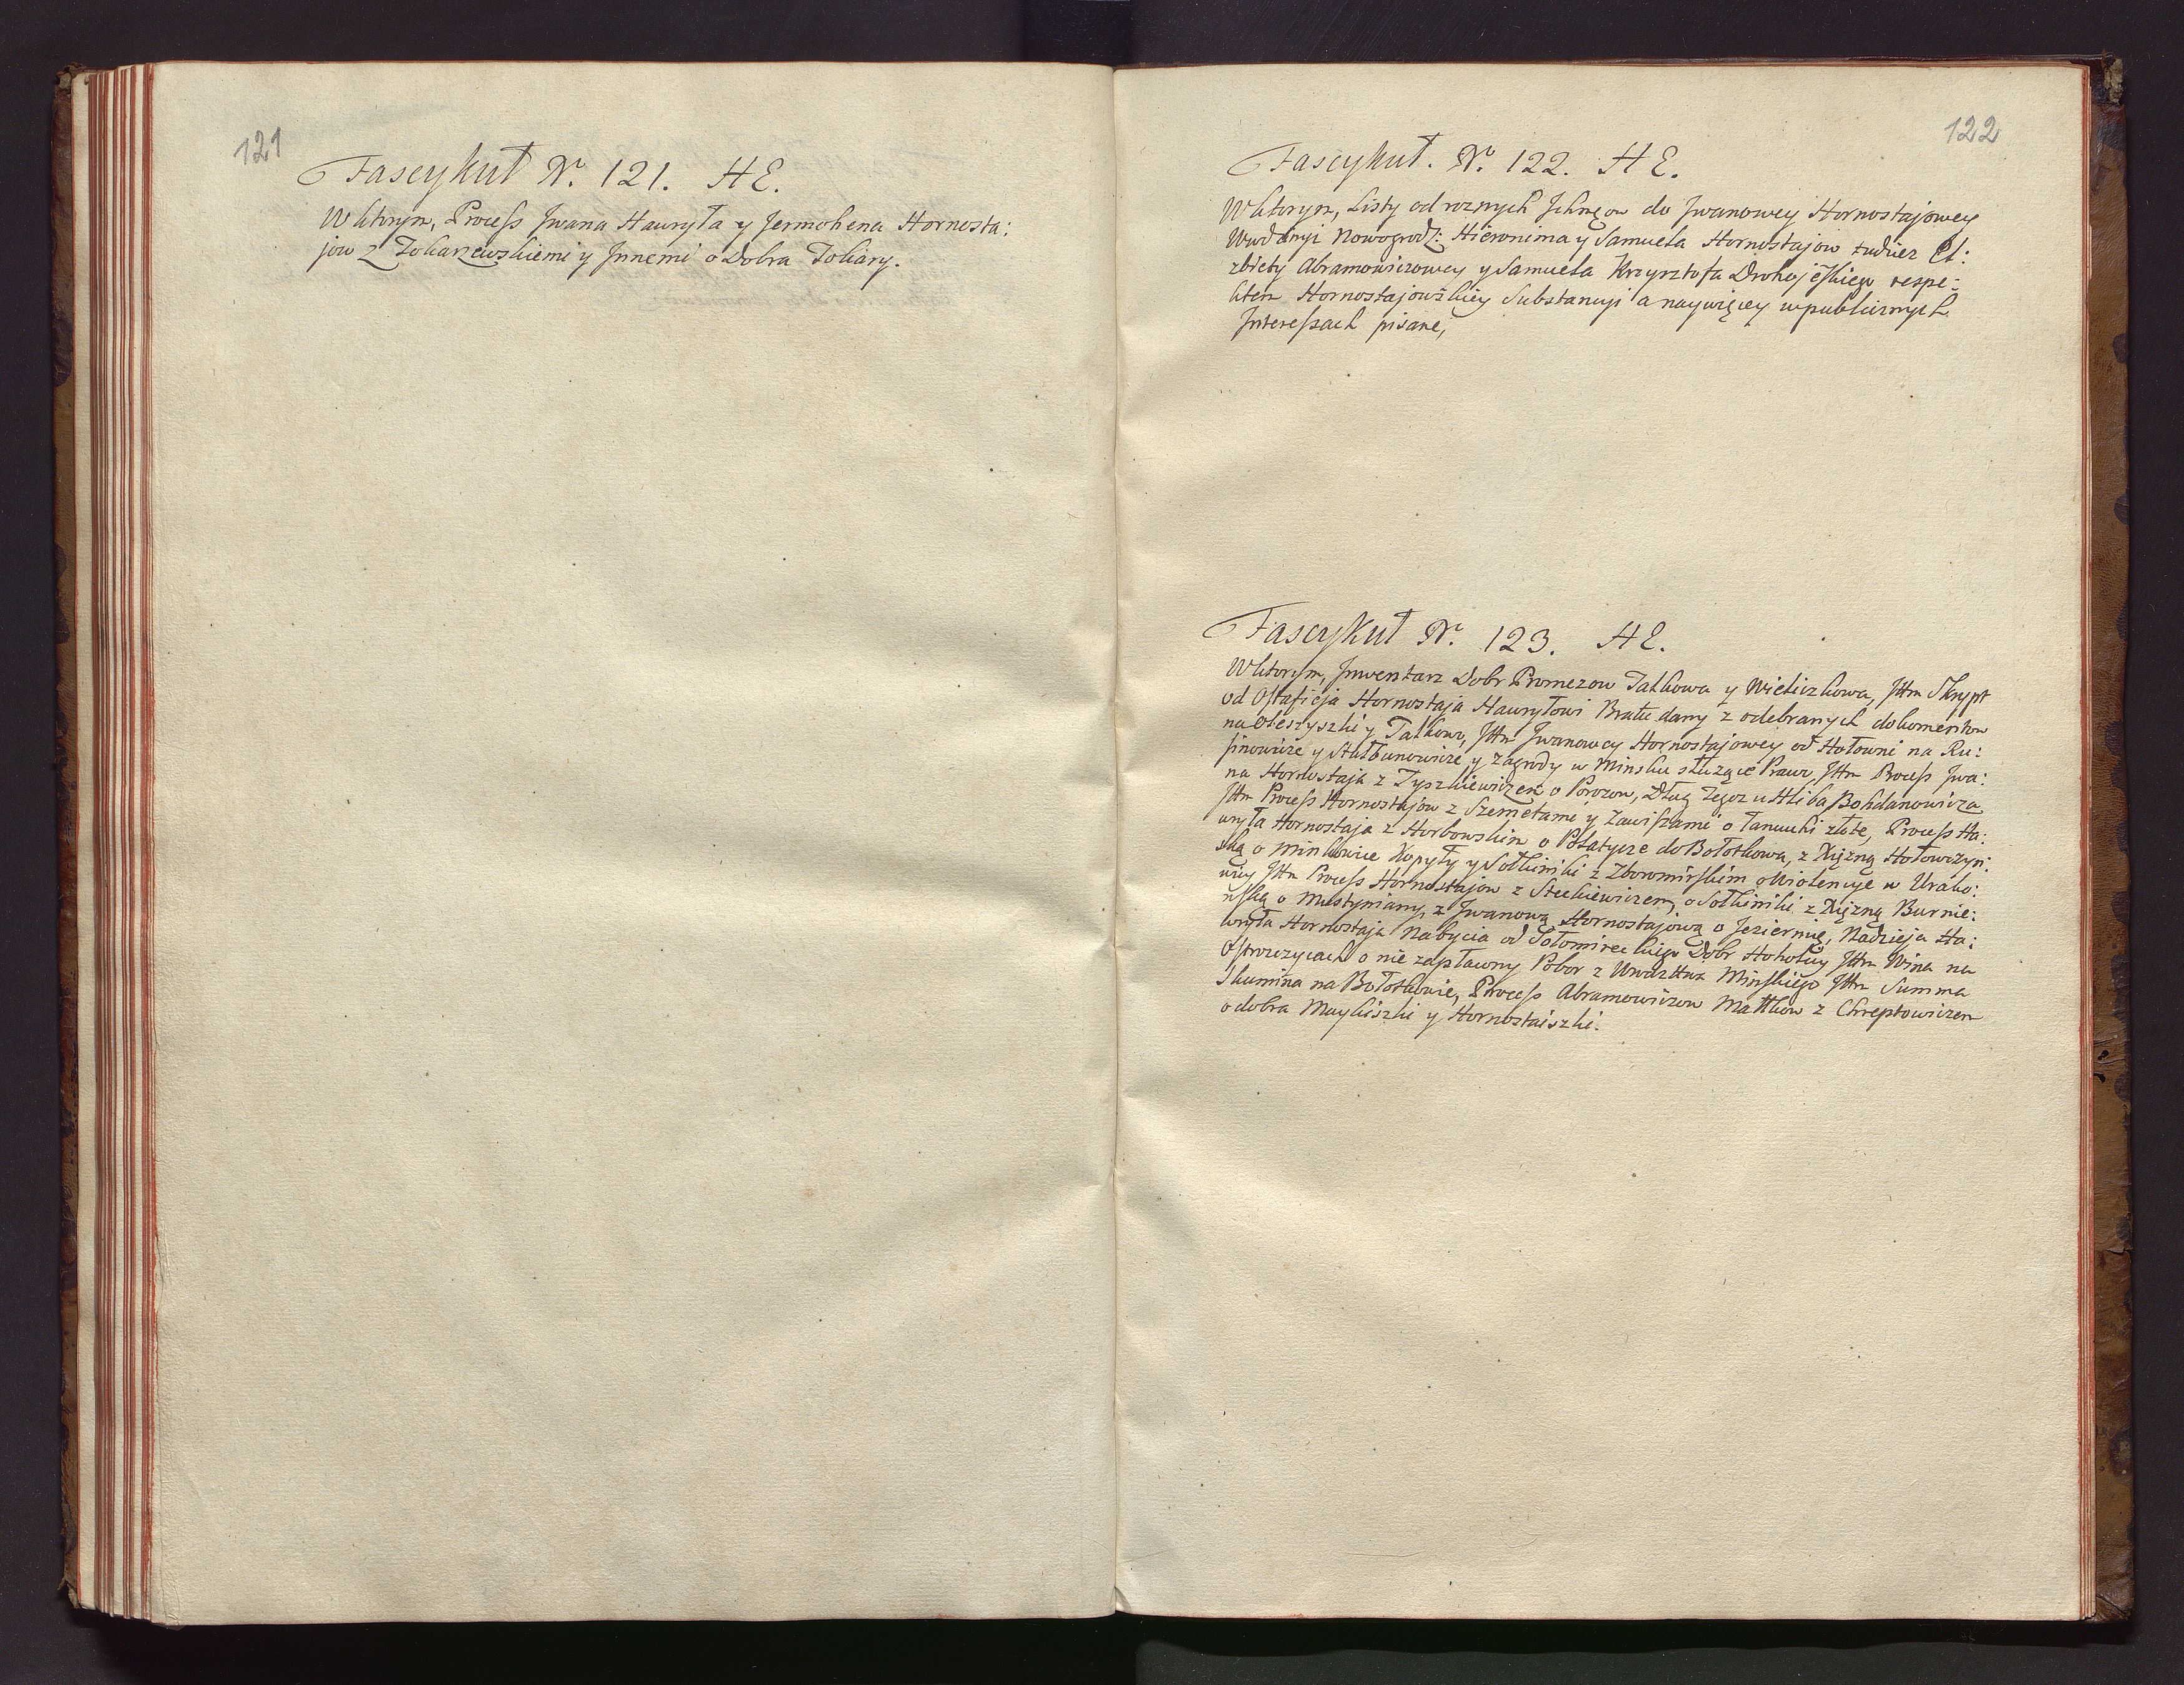 121
Fascykuł Nr. 121. HE.
W ktorym, Process Jwana Hauryła y Jermohena Hornosta:
jow z Tokarzewskiemi y Jnnemi o Dobra Tokary.
122
Fascykuł. Nr. 122. HE.
W ktorym, Listy od roznych Jchmcow do Jwanowey Hornostajowey
Wwdzinyi Nowogrodz: Hieronima y Samuela Hornostajow tudziez El:
zbiety Abramowiczowey y Samuela Krzysztofa Drohojeskiego respe:
ktem Hornostajowskiey Substancyi a naywięcey w publicznych
Jnteressach pisane,
Fascykuł Nr. 123. HE.
W ktorym, Jnwentarz Dobr Promezow Talkowa y Wieliczkowa, Jttm Skrypt
od Ostafieja Hornostaja Hauryłowi Bratu dany z odebranych dokomentow
na Oleszyszki y Talkow, Jttm Jwanowey Hornostajowey od Hołowni na Ru:
sinowicze y Stałbunowicze y zagrody w Minsku służące Prawo, Jttm Process Jwa:
na Hornostaja z Tyszkiewiczem o Porozow, Dług Tegoz u Hliba Bohdanowicza
Jttm Process Hornostajow z Szemetami y Zawiszami o Łancuchi złote, Process Ha:
uryła Hornostaja z Horbowskim o Połatycze do Bołotkowa, z Xięzną Hołowczyn:
ską o Minkowice Kopyły y Sołkiniki z Zboromirskim o Wiolencye w Uzako:
wicy Jttm Process Hornostajow z Steckiewiczem, o Sołkiniki z Xięzną Burnie:
wską o Mestyniany, z Jwanową Hornostajową o Jeziernię, Nadzieja Ha:
uryła Hornostaja Nabycia od Sołomireckiego Dobr Hoholicy Jttm Wina na
Oproszycach o nie zapłacony Pobor z Wwdztwa Minskiego Jttm Summa
Skumina na Bołotkowie, Process Abramowiczow Mattkow z Chreptowiczem
o dobra Maykiszki y Hornostaiszki.